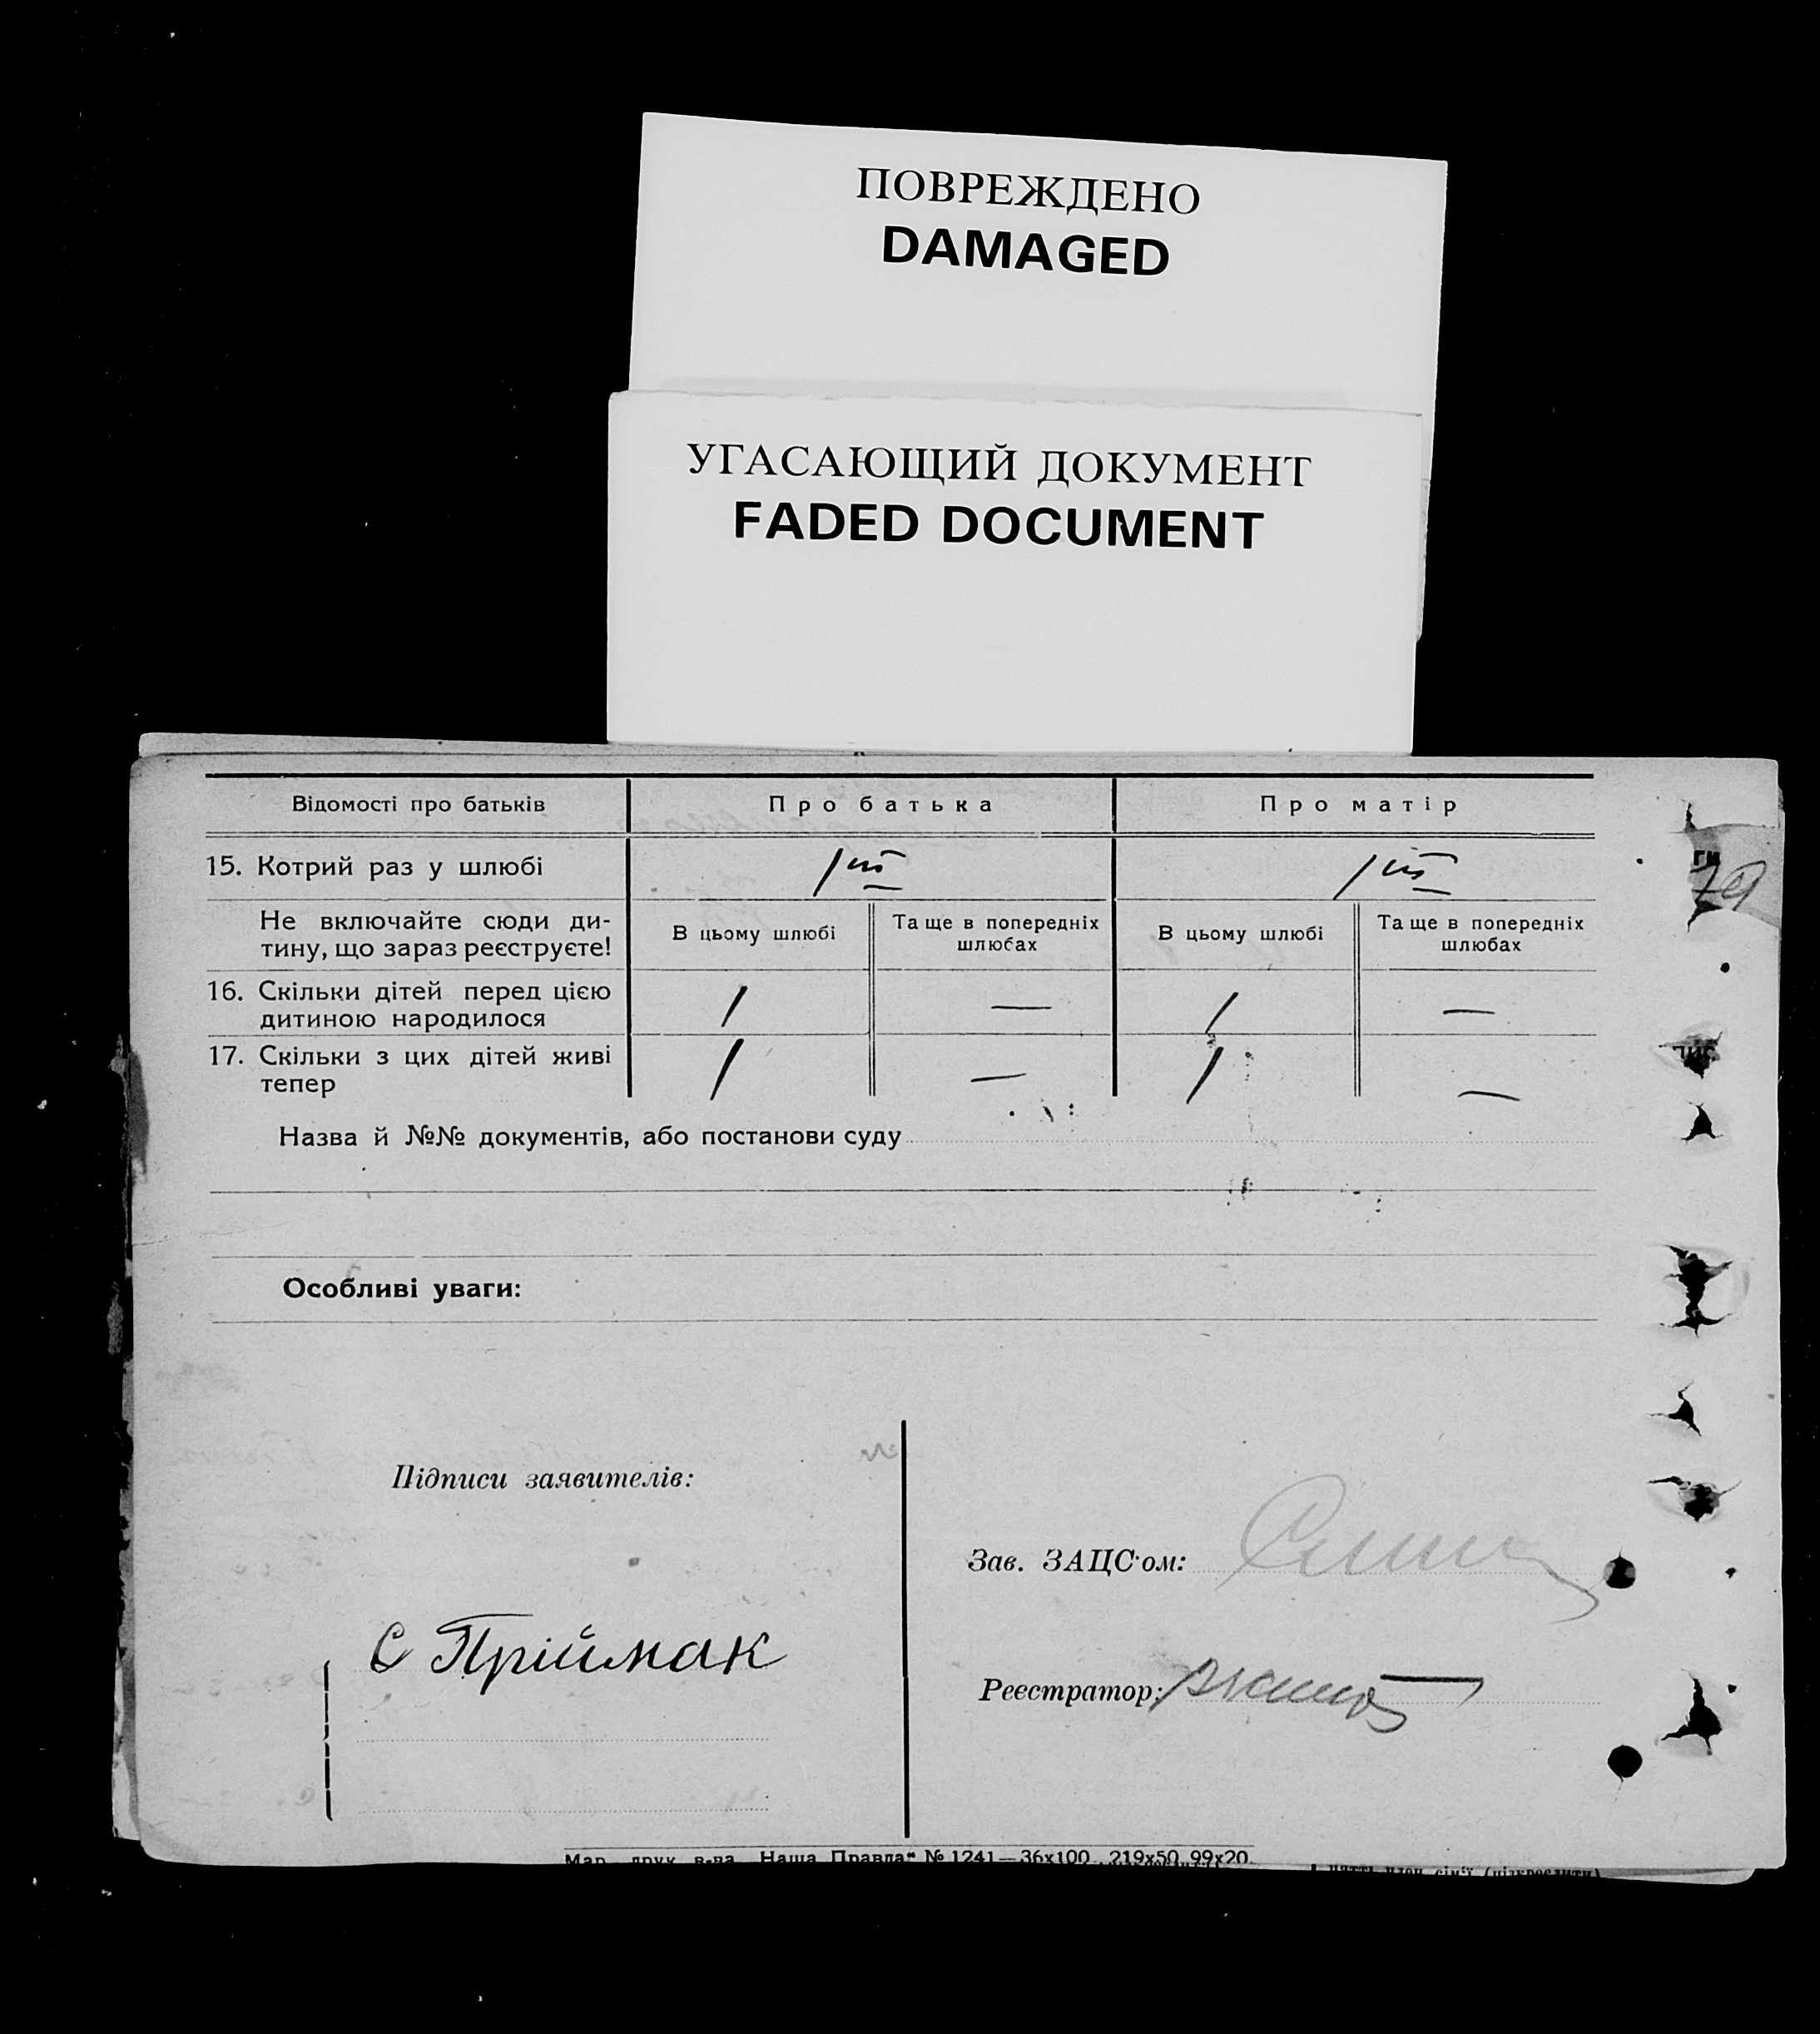 ПОВРЕЖДЕНО
DAMAGED
УГАСАЮЩИЙ ДОКУМЕНТ
FADED DOCUMENT
Відомості про батьків Про батька Про матір
15. Котрий раз у шлюбі 1ий 1ий
Не включайте сюди ди-
тину, що зараз реєструєте!
В цьому шлюбі Та ще в попередніх шлюбах В цьому шлюбі Та ще в попередніх шлюбах
16. Скільки дітей перед цією
дитиною народилося 1 — 1 —
17. Скільки з цих дітей живі
тепер 1 — 1 —
Назва й №№ документів, або постанови суду
Особливі уваги:
Підписи заявителів:
Зав. ЗАЦС'ом:
С Пріймак
Реєстратор:
Мар. друк. в-ва „Наша Правда“ № 1241—36х100. 219х50 99х20.
сім'ї (підкреслити)